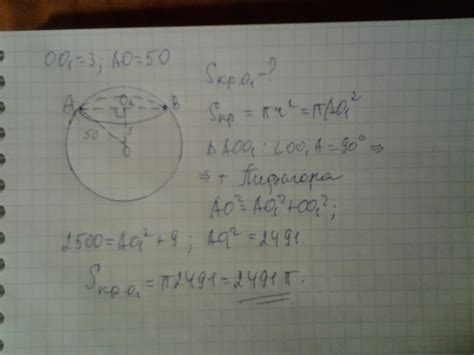 OO₁=3; AO=50
Sкр.O₁-?
A
O₁
B
50
3
O
Sкр=πr²=πAO₁²
ΔAOO₁: ∠OO₁A=90° ⇒
⇒ т. Пифагора
AO²=AO₁²+OO₁²;
2500=AO₁²+9; AO₁²=2491.
Sкр.O₁=π2491=2491π.